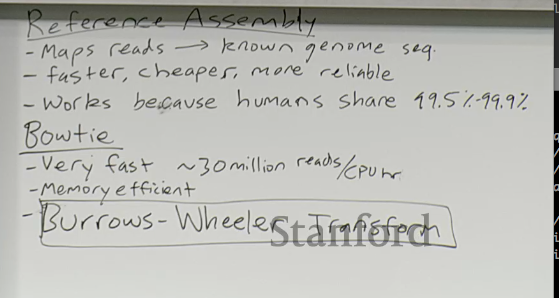 Reference Assembly
- Maps reads → known genome seq.
- faster, cheaper, more reliable
- Works because humans share 99.5%-99.9%
Bowtie
- Very fast ~30 million reads/CPU hr
- Memory efficient
- Burrows-Wheeler Transform
Stanford